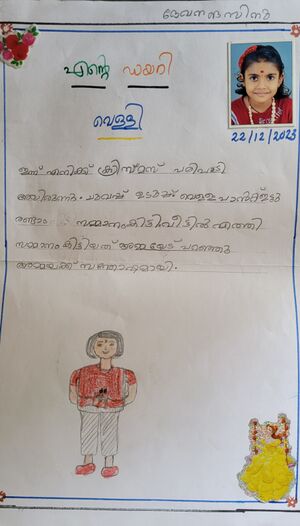 ദേവനന്ദ സിനു
എന്റെ ഡയറി
വെള്ളി
22/12/2023
ഇന്ന് എനിക്ക് ക്രിസ്മസ് പരിപാടി
ഉടുപ്പ് വെള്ള പാൻ്റ് ഇട്ടു
രണ്ടാം സമ്മാനം കിട്ടി വീട്ടിൽ എത്തി
സമ്മാനം കിട്ടിയത് അമ്മയോട് പറഞ്ഞു
അമ്മയ്ക്ക് സന്തോഷമായി.